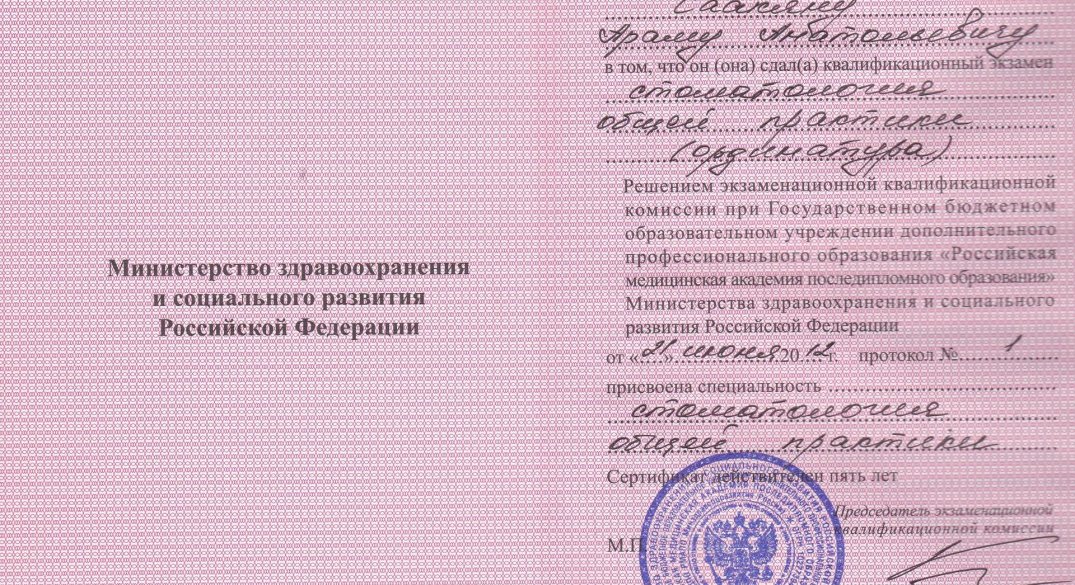 Министерство здравоохранения
и социального развития
Российской Федерации
Саакяну
Араму Анатольевичу
в том, что он (она) сдал(а) квалификационный экзамен
стоматология
общей практики
(ординатура)
Решением экзаменационной квалификационной
комиссии при Государственном бюджетном
образовательном учреждении дополнительного
профессионального образования «Российская
медицинская академия последипломного образования»
Министерства здравоохранения и социального
развития Российской Федерации
от «21» июня 2012 г. протокол № 1
присвоена специальность
стоматология
общей практики
Сертификат действителен пять лет
Председатель экзаменационной
квалификационной комиссии
М.П.